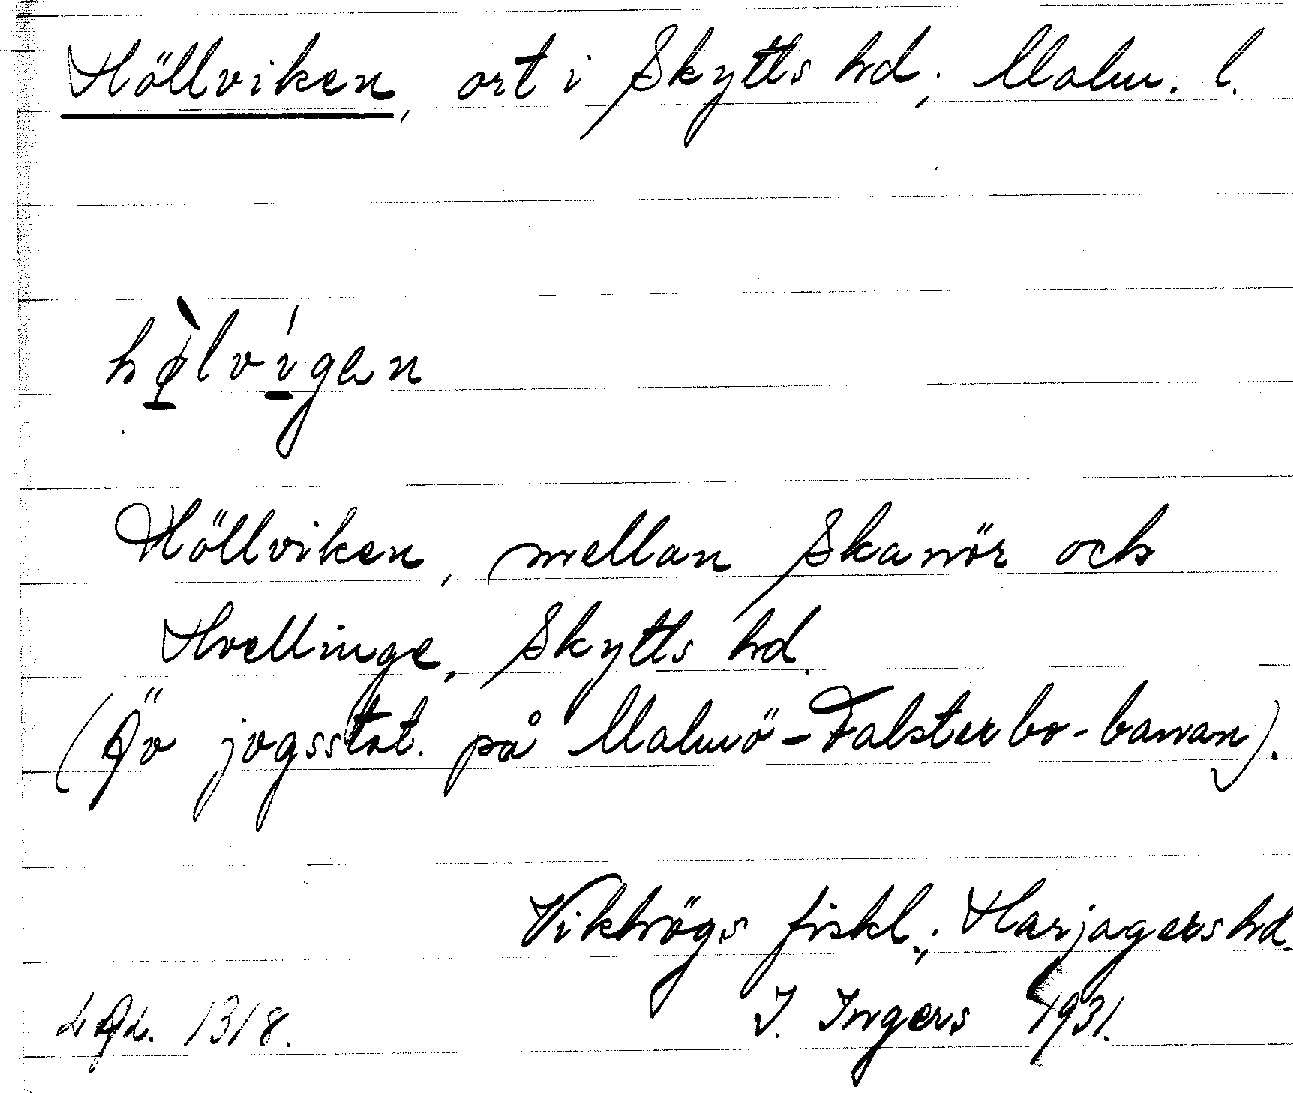 Höllviken, ort i Skytts hd; Malm. l.
hø̀lvígen
Höllviken, mellan Skanör och
Hvellinge, Skytts hd.
(Äv jvgsstat. på Malmö-Falsterbo-banan).
Vikhögs fiskl., Harjagers hd.
1318. I. Ingers 1931.